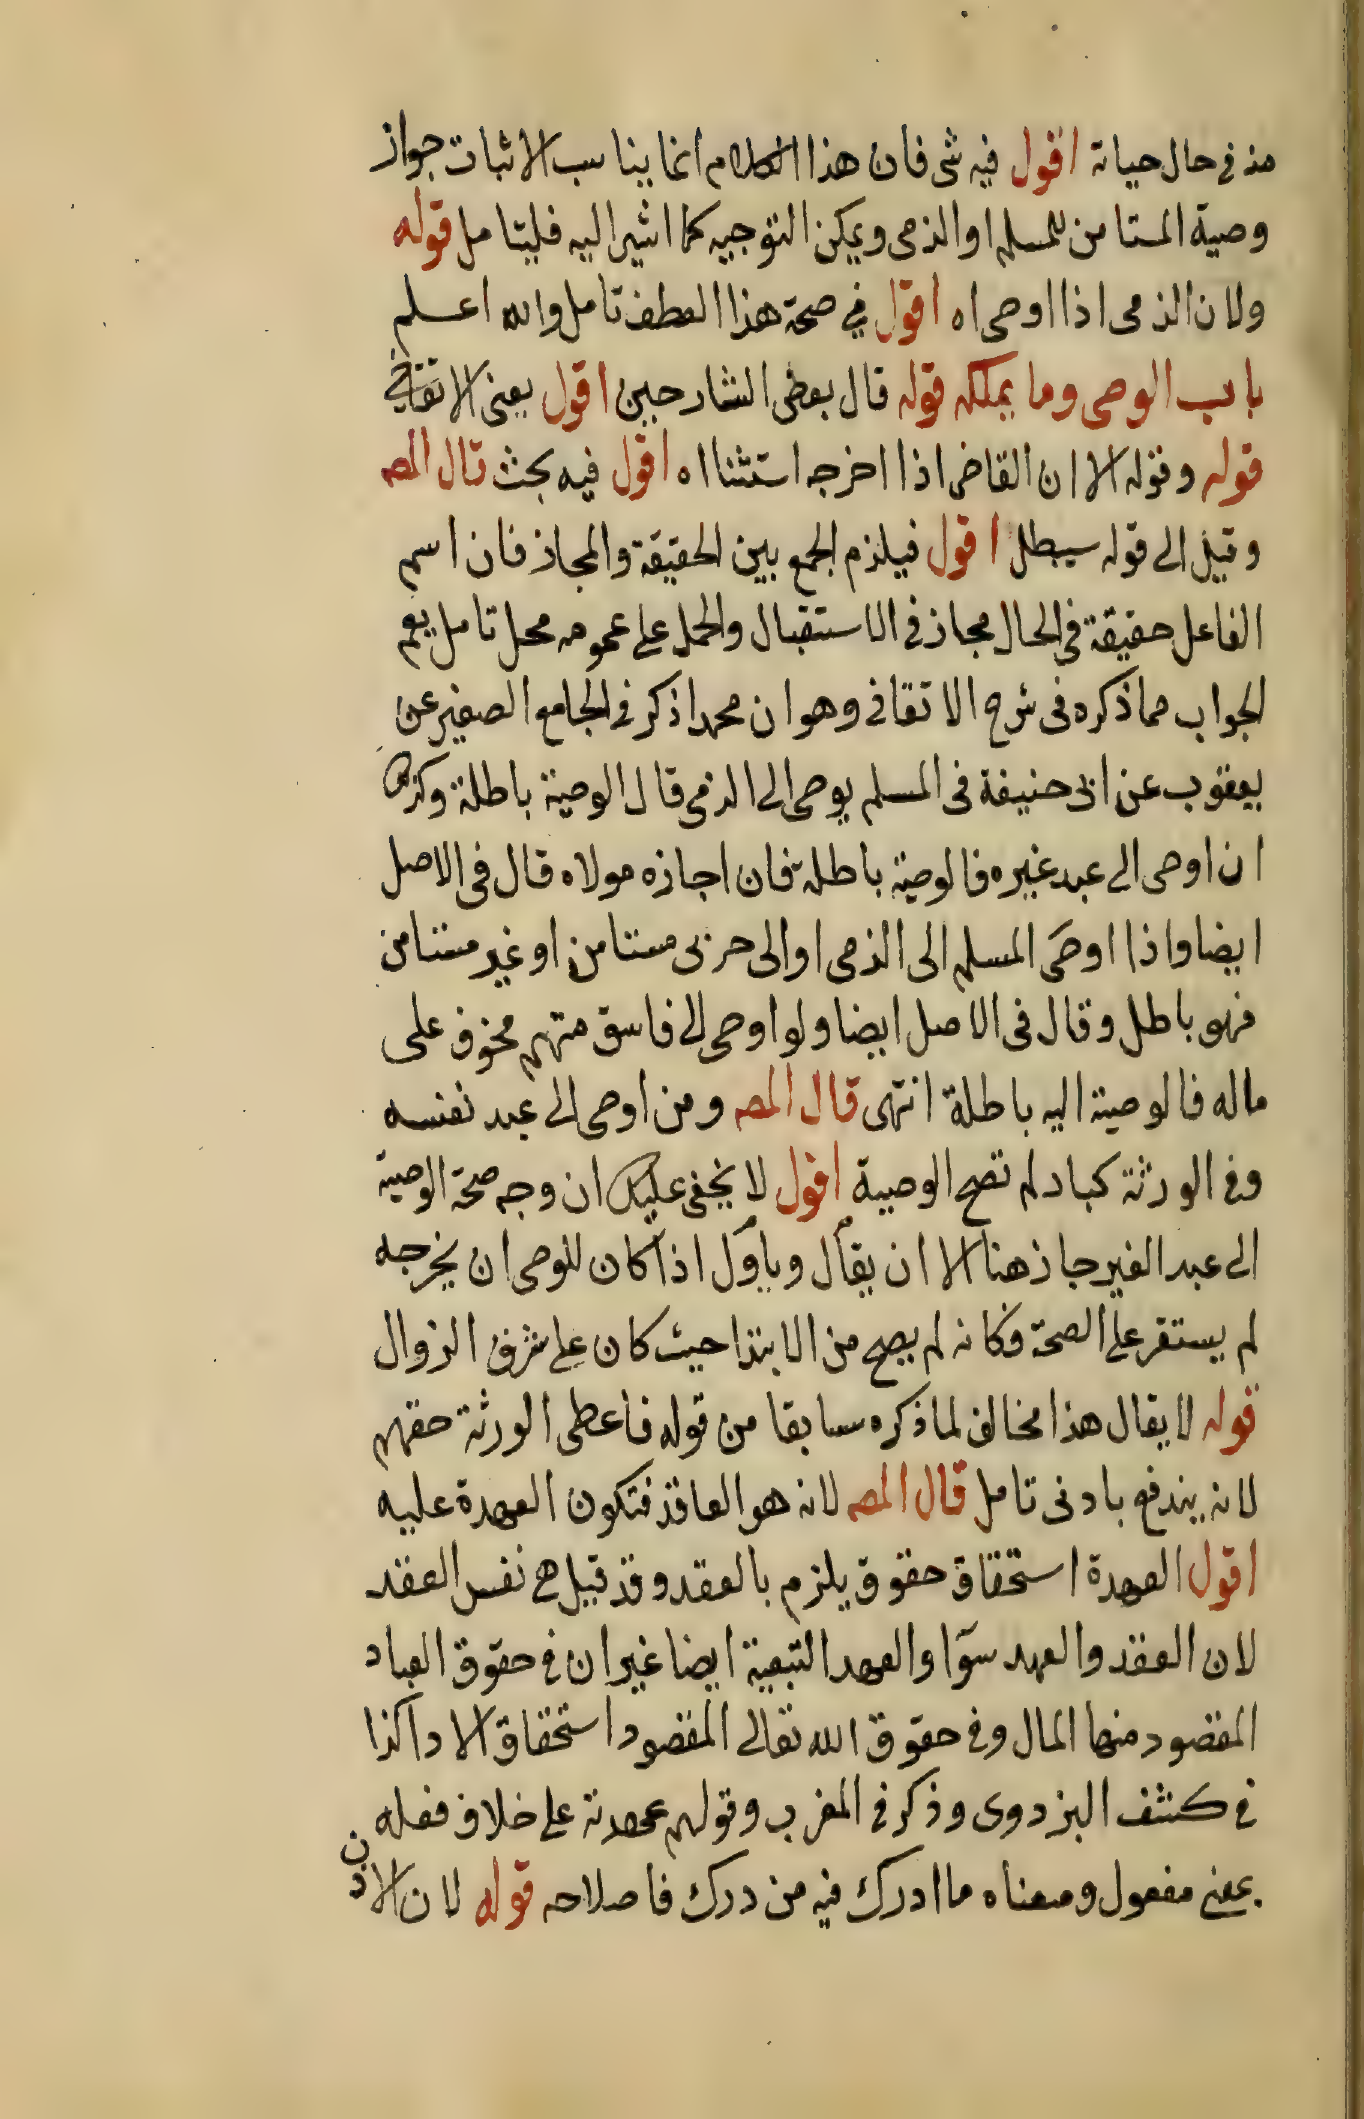 منه في حال حياته اقول فيه شى فان هذا الكلام انما يناسب الاثبات جواز
وصية المستامن للمسلم او الذمى ويمكن التوجيه كما اشير اليه فليتامل قوله
ولان الذمى اذا اوصى اه اقول في صحة هذا العطف تامل والله اعلم
باب الوصى وما يملكه قوله قال بعض الشارحين اقول يعنى الاتقانى
قوله وقوله الا ان القاضى اذا اخرجه استثنا اه اقول فيه بحث قال المص
وقيل الى قوله سيبطل اقول فيلزم الجمع بين الحقيقة والمجاز فان اسم
الفاعل حقيقة في الحال مجاز في الاستقبال والحمل على عمومه محل تامل يعم
الجواب مما ذكره فى شرح الاتقانى وهو ان محمدا ذكر في الجامع الصغير عن
يعقوب عن ابى حنيفة فى المسلم يوصى الى الذمى قال الوصية باطلة وكذلك
ان اوصى الى عبد غيره فالوصية باطلة فان اجازه مولاه قال فى الاصل
ايضا واذا اوصى المسلم الى الذمى او الى حربى مستامن او غير مستامن
فهو باطل وقال فى الاصل ايضا ولو اوصى الى فاسق متهم مخوف على
ماله فالوصية اليه باطلة انتهى قال المص ومن اوصى الى عبد نفسه
وفى الورثة كبار لم تصح الوصية اقول لا يخفى عليك ان وجه صحة الوصية
الى عبد الغير جاز هنا الا ان يقال وياول اذا كان للوصى ان يخرجه
لم يستقر على الصحة وكانه لم يصح من الابتدا حيث كان على شرف الزوال
قوله لا يقال هذا مخالف لما ذكره سابقا من قوله فاعطى الورثة حقهم
لانه يندفع بادنى تامل قال المص لانه هو العاقد فتكون العهدة عليه
اقول العهدة استحقاق حقوق يلزم بالعقد وقد قيل هى نفس العقد
لان العقد والعهد سوا والعهد التبعية ايضا غير ان في حقوق العباد
المقصود منها المال وفى حقوق الله تعالى المقصود استحقاق الادا كذا
في كشف البزدوى وذكر في المغرب وقولهم عهدته على خلاف فعله
بمعنى مفعول ومعناه ما ادرك فيه من درك فاصلاحه قوله لان الاذن